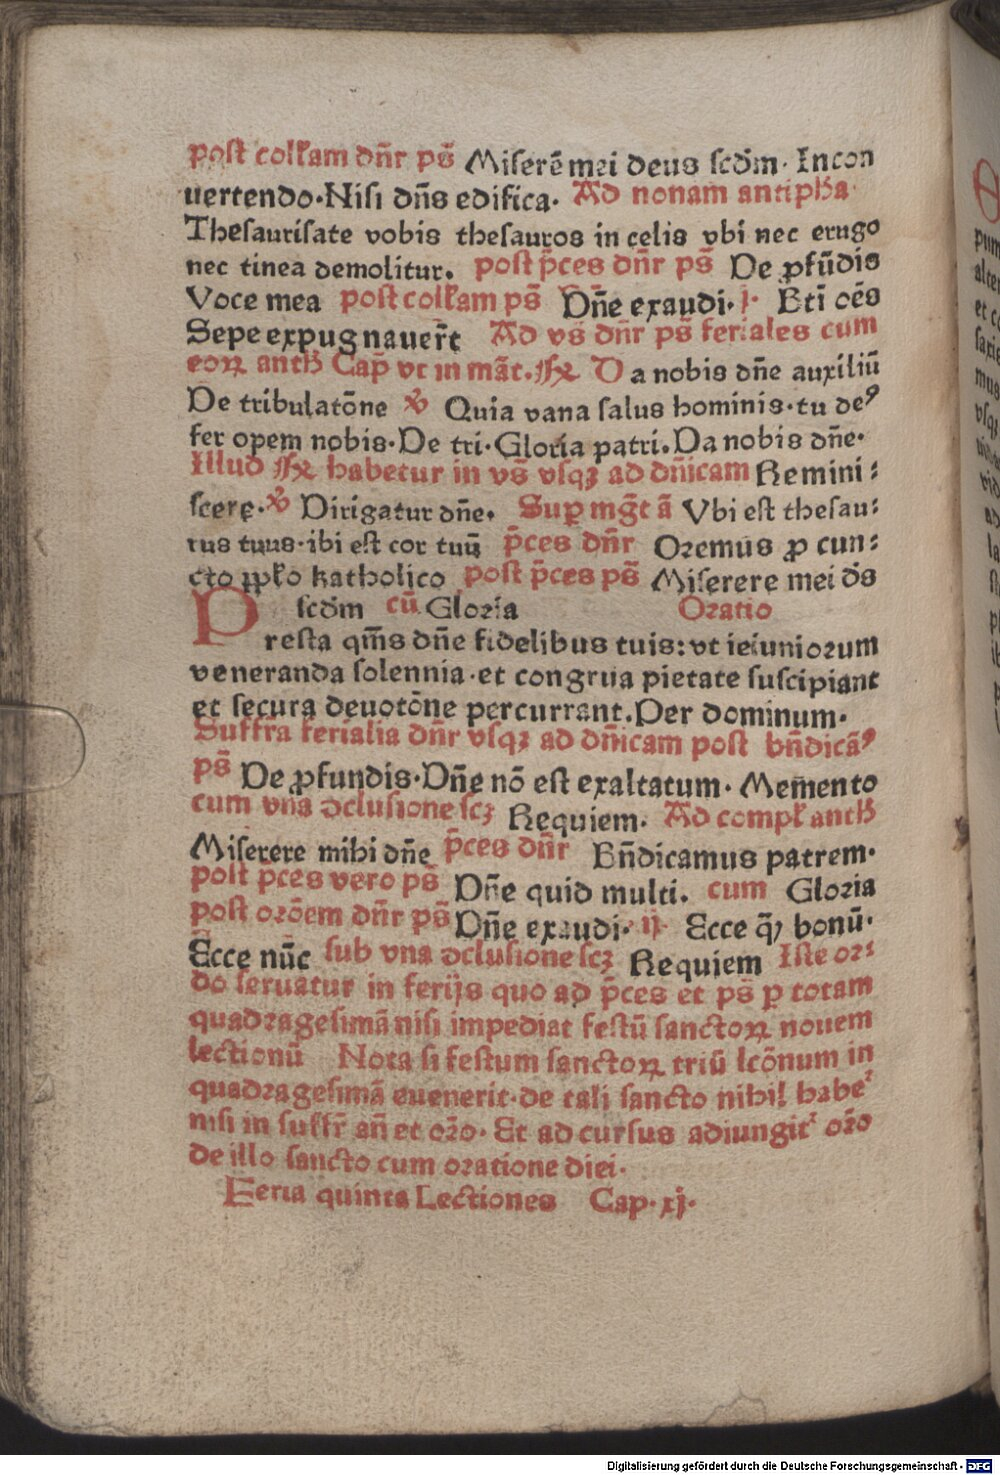 post collam dn̄r ps̄ Miserē mei deus scdm̄· In con
uertendo·Nisi dn̄s edifica· Ad nonam antiph̄a·
Thesaurisate vobis thesauros in celis vbi nec erugo
nec tinea demolitur. post p̄ces dn̄r ps̄ De ꝓfūdis
Voce mea post collam ps̄ Dn̄e exaudi·j· Etī oēs
Sepe expugnauerūt Ad vs̄ dn̄r ps̄ feriales cum
eoꝝ anth̄ Cap̄ vt in māt. Da nobis dn̄e auxiliū
De tribulatōne Quia vana salus hominis·tu deꝰ
fer opem nobis·De tri·Gloria patri.Da nobis dn̄e·
Illud habetur in vs̄ vsqꝫ ad dn̄icam Remini:
scere· Dirigatur dn̄e. Suꝑ mḡt ā Vbi est thesau:
rus tuus·ibi est cor tuū p̄ces dn̄r Oremus ꝓ cun:
cto ppl̄o katholico post p̄ces ps̄ Miserere mei ds̄
scdm̄ cū Gloria Oratio
Presta qm̄s dn̄e fidelibus tuis:vt ieiuniorum
veneranda solennia·et congrua pietate suscipiant
et secura deuotōne percurrant.Per dominum·
Suffra ferialia dn̄r vsqꝫ ad dn̄icam post bn̄dicāꝰ
ps̄ De ꝓfundis·Dn̄e nō est exaltatum· Memento
cum vna ↄclusione scꝫ Requiem· Ad compl̄ anth̄
Miserere mihi dn̄e p̄ces dn̄r Bn̄dicamus patrem·
post p̄ces vero ps̄ Dn̄e quid multi. cum Gloria
post orōem dn̄r ps̄ Dn̄e exaudi·ij· Ecce q̄ bonū·
Ecce nūc sub vna ↄclusione scꝫ Requiem Iste or:
do seruatur in ferijs quo ad p̄ces et ps̄ ꝑ totam
quadragesimā nisi impediat festū sanctoꝝ nouem
lectionū Nota si festum sanctoꝝ triū lcōnum in
quadragesimā euenerit·de tali sancto nihil habeᵗ
nisi in suffr̄ an̄ et oro· Et ad cursus adiungitᵗ oro
de illo sancto cum oratione diei·
Feria quinta Lectiones Cap·xj·
Digitalisierung gefördert durch die Deutsche Forschungsgemeinschaft - DFG